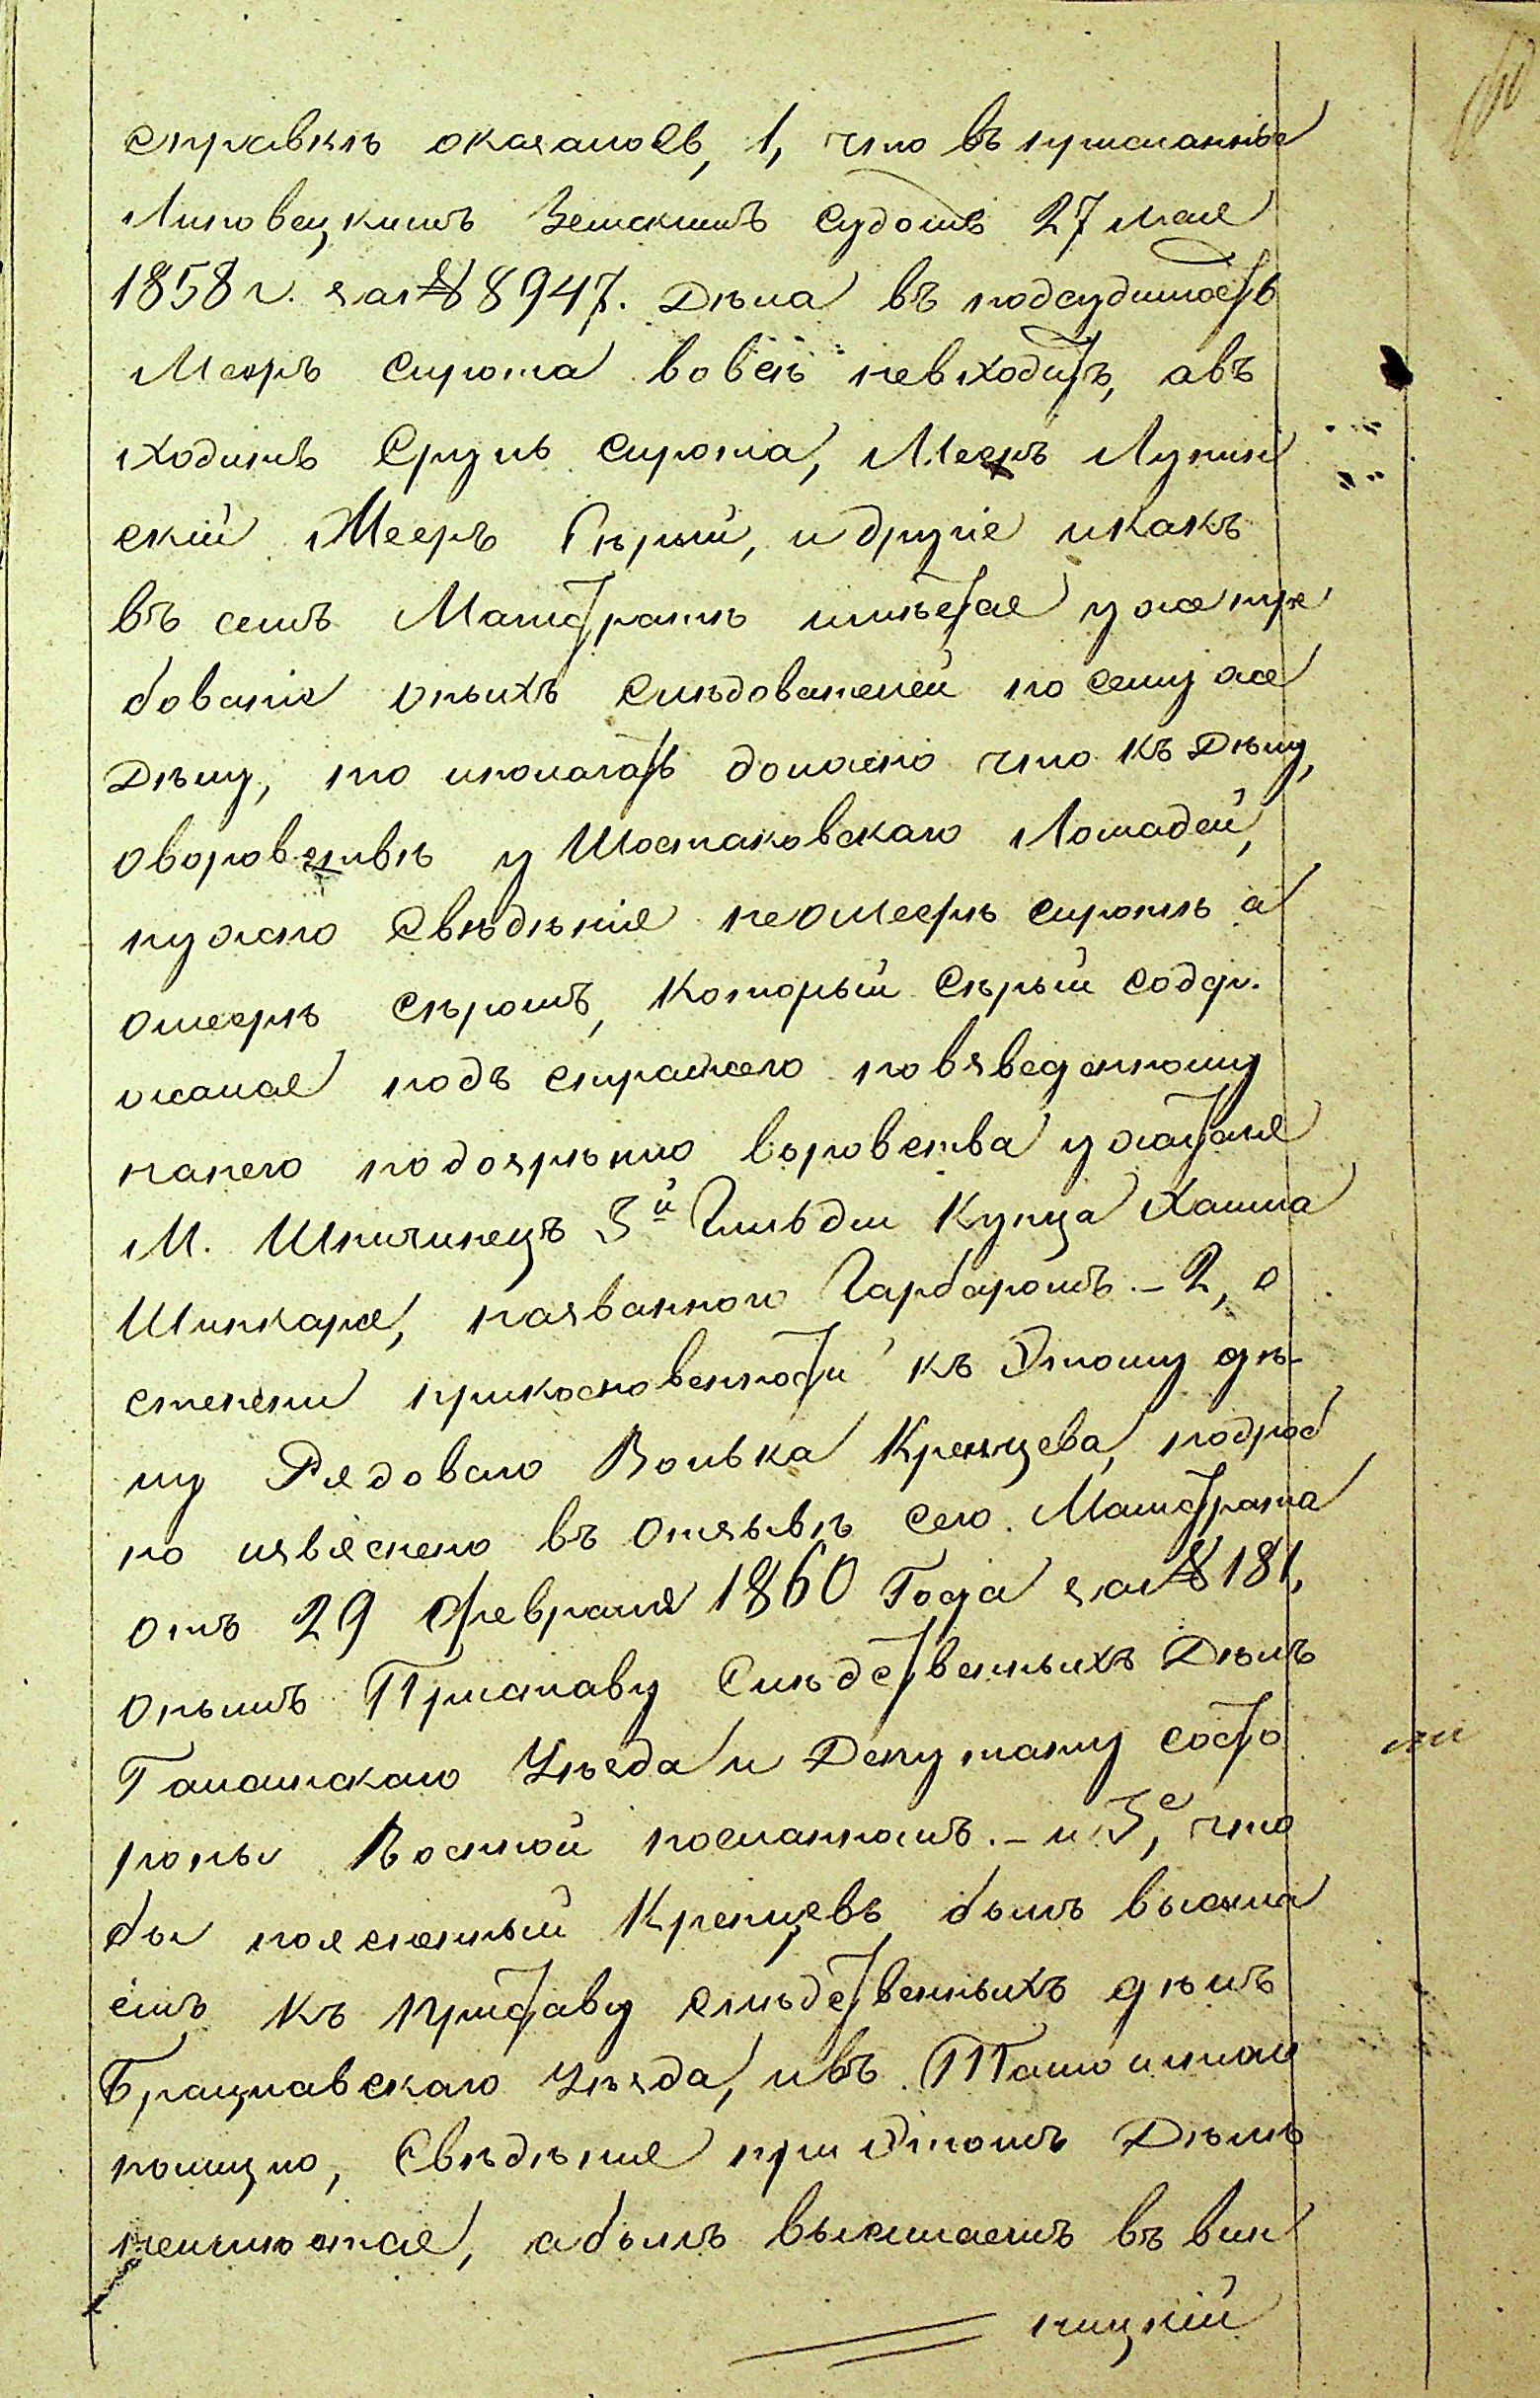 справкѣ оказалось, 1, что въ присланнѣе
Липовецкимъ Земскимъ Судомъ 27 Мая
1858 г. за № 8947. Дѣла въ подсудимость
Меэръ Сирота вовсѣ невходитъ, авъ
ходитъ Сруль Сирота, Меэръ Лупин
скій Мееръ Сѣрый, и другіе икакъ
въ семъ Магистратѣ имѣется уже тре
бованіе оныхъ Слѣдователей по сему же
Дѣлу, то иполагать должно что къ Дѣлу,
оворовствѣ у Шостаковскаго Лошадей,
нужно Свѣдѣніе неомеерѣ Сиротѣ а
омеерѣ Сѣромъ, который Сѣрый содер.
жался подъ стражею повзведенному
нанего подозрѣнію воровства ужителя
М. Шпичинецъ 3й Гильдіи Купца Хаима
Шинкаря, названного Гарбаромъ. – 2, о
степени прикосновенности къ Этому дѣ-
лу Рядоваго Волька Кренцева, подроб
но изъяснено въ отзывѣ сего Магистрата
отъ 29 февраля 1860 Года за № 181,
онымъ Приставу Слѣдственныхъ Дѣлъ
Гайсинскаго Уѣзда и Депутату состо
роны Военной посланномъ. – и 3е, что
бы поясненный Кренцевъ былъ высыла
емъ къ Приставу слѣдственныхъ дѣлъ
Брацлавскаго Уѣзда, ивъ
полицію, Свѣдѣнія при Этомъ Дѣлѣ
неимѣется, абылъ высылаемъ въ Вин
ницкій